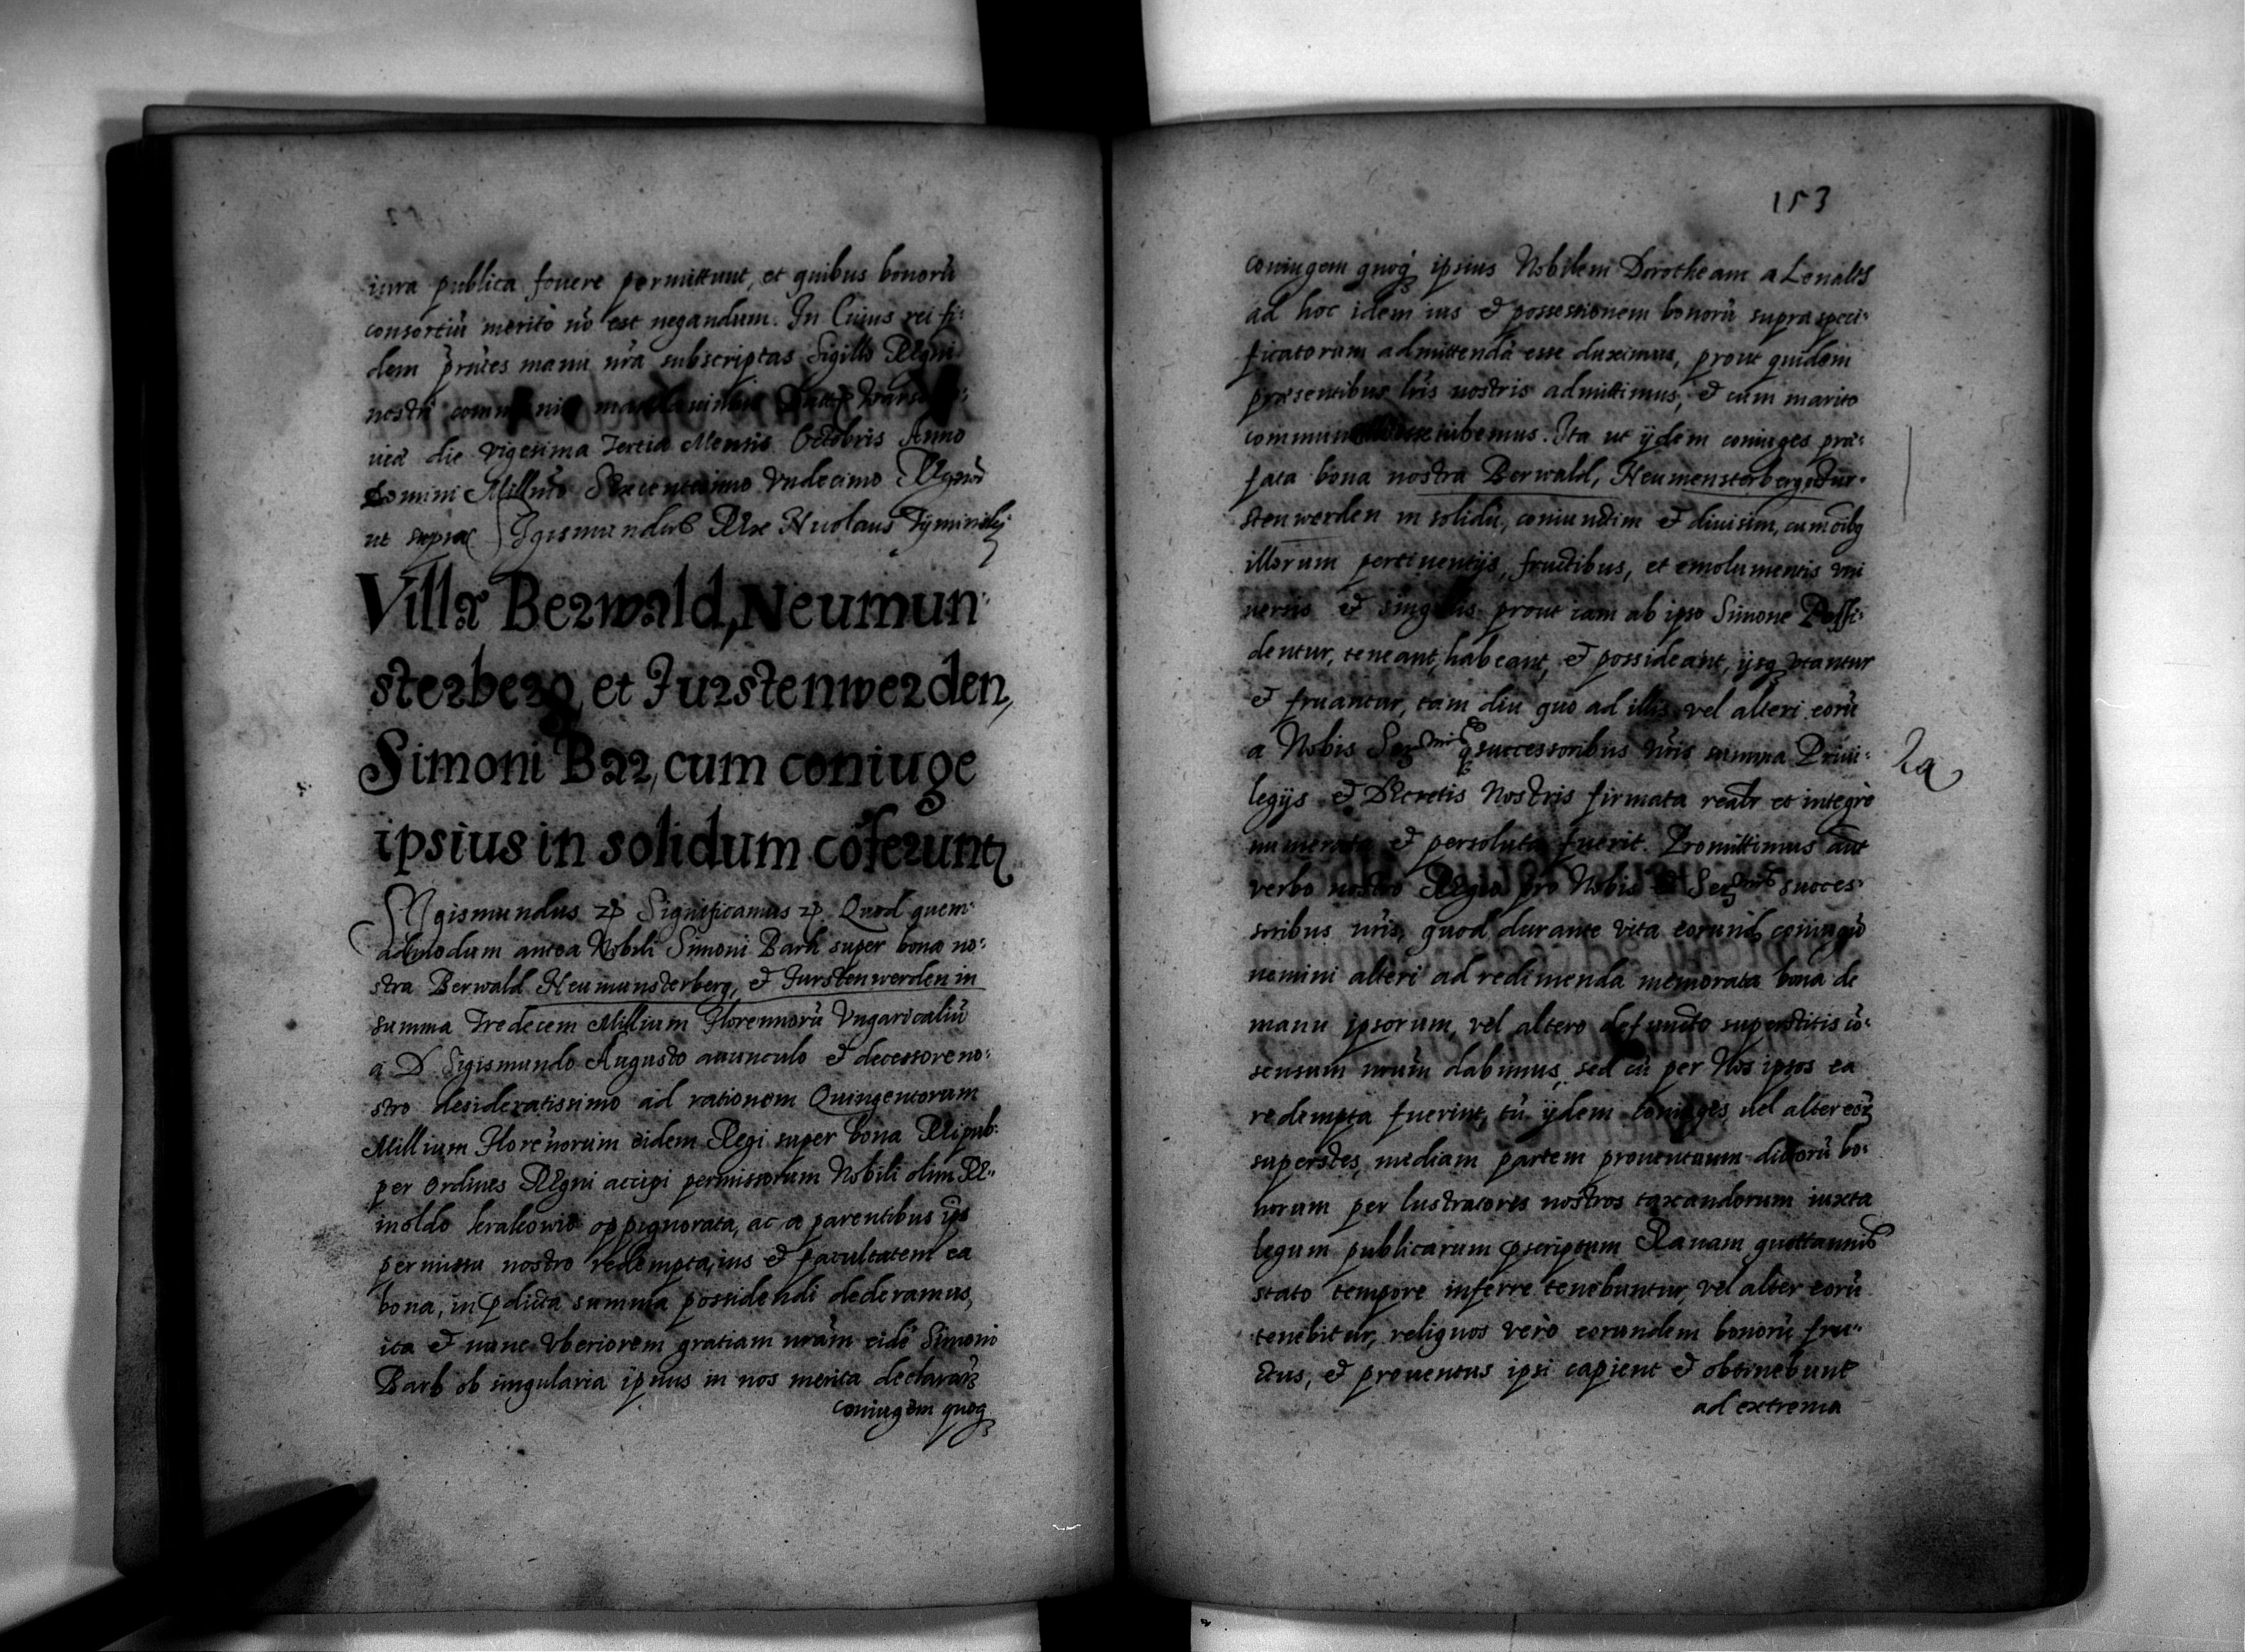 iura publica fouere permittunt, et quibus bonorū
consortiū merito nō est negandum. In Cuius rei fi:
dem p̄ntes manu nr̄a subscriptas Sigillo Regni
nostri
uiā die vigesima Tertia Mensis Octobris Anno
Domini Millmō Sexcentesimo Vndecimo Regnor̄
ut supra Sigismundus Rex Nicolaus Tyminsky
Villæ Berwald, Neumun
sterberg, et Furstenwerden,
Simoni Bar, cum coniuge
ipsius in solidum cōferunt
Sigismundus Significamus Quod quem:
admodum antea Nobili Simoni Barh super bona no:
stra Berwald Neumunsterberg, & Furstenwerden in
summa Tredecem Millium Florennorū Vngaricaliū
a D Sigismundo Augusto auunculo & decessore no:
stro desideratissimo ad rationem Quingentorum
Millium Florenorum eidem Regi super bona Reipub:
per ordines Regni accipi permissorum Nobili olim Re"
inoldo krakowio oppignorata, ac a parentibus
permissu nostro redempta, ius & facultatem ea
bona, in p̄dicta summa possidendi dederamus,
ita & nunc Vberiorem gratiam nrām eidē Simoni
Barh ob singularia ipsius in nos merita
coniugem quoq
153
coniugem quoq ipsius Nobilem Dorotheam a
ad hoc idem ius & possessionem bonorū supra speci:
ficatorum admittendā esse duximus, prout quidem
præsentibus lr̄is nostris admittimus, & cum marito
iubemus. Ita ut ijdem coniuges præ:
fata bona nostra Berwald, Neumensterberg, & Fur:
stenwerden in solidū, coniunctim & diuisim, cum oībq
illorum pertinentijs, fructibus, et emolumentis vni
uersis & singulis prout iam ab ipso Simone Possi:
dentur, teneant, habeant, & possideant, ijsq vtantur
& fruantur, tam diu quo ad illis vel alteri eorū
a Nobis Ser successoribus nr̄is summa Priui:
legijs & Decretis Nostris firmata realr et integrè
numerata & persoluta fuerit. Promittimus aūt
verbo nostro Regio pro Nobis & Ser succes:
soribus nr̄is, quod durante vita eorund coniugū
nemini alteri ad redimenda memorata bona de
manu ipsorum, vel altero defuncto superstitis cō:
sensum nrūm dabimus, sed cū per Nos ipsos ea
redempta fuerint, tū ijdem coniuges, vel alter eor
superstes, mediam partem prouentuum dictorū bo:
norum per lustratores nostros taxandorum iuxta
legum publicarum p̄scriptum Rauam quottannis
stato tempore inferre tenebuntur, vel alter eorū
tenebitur, reliquos verò eorundem bonorū fru"
ctus, & prouentus ipsi capient & obtinebunt
ad extrema